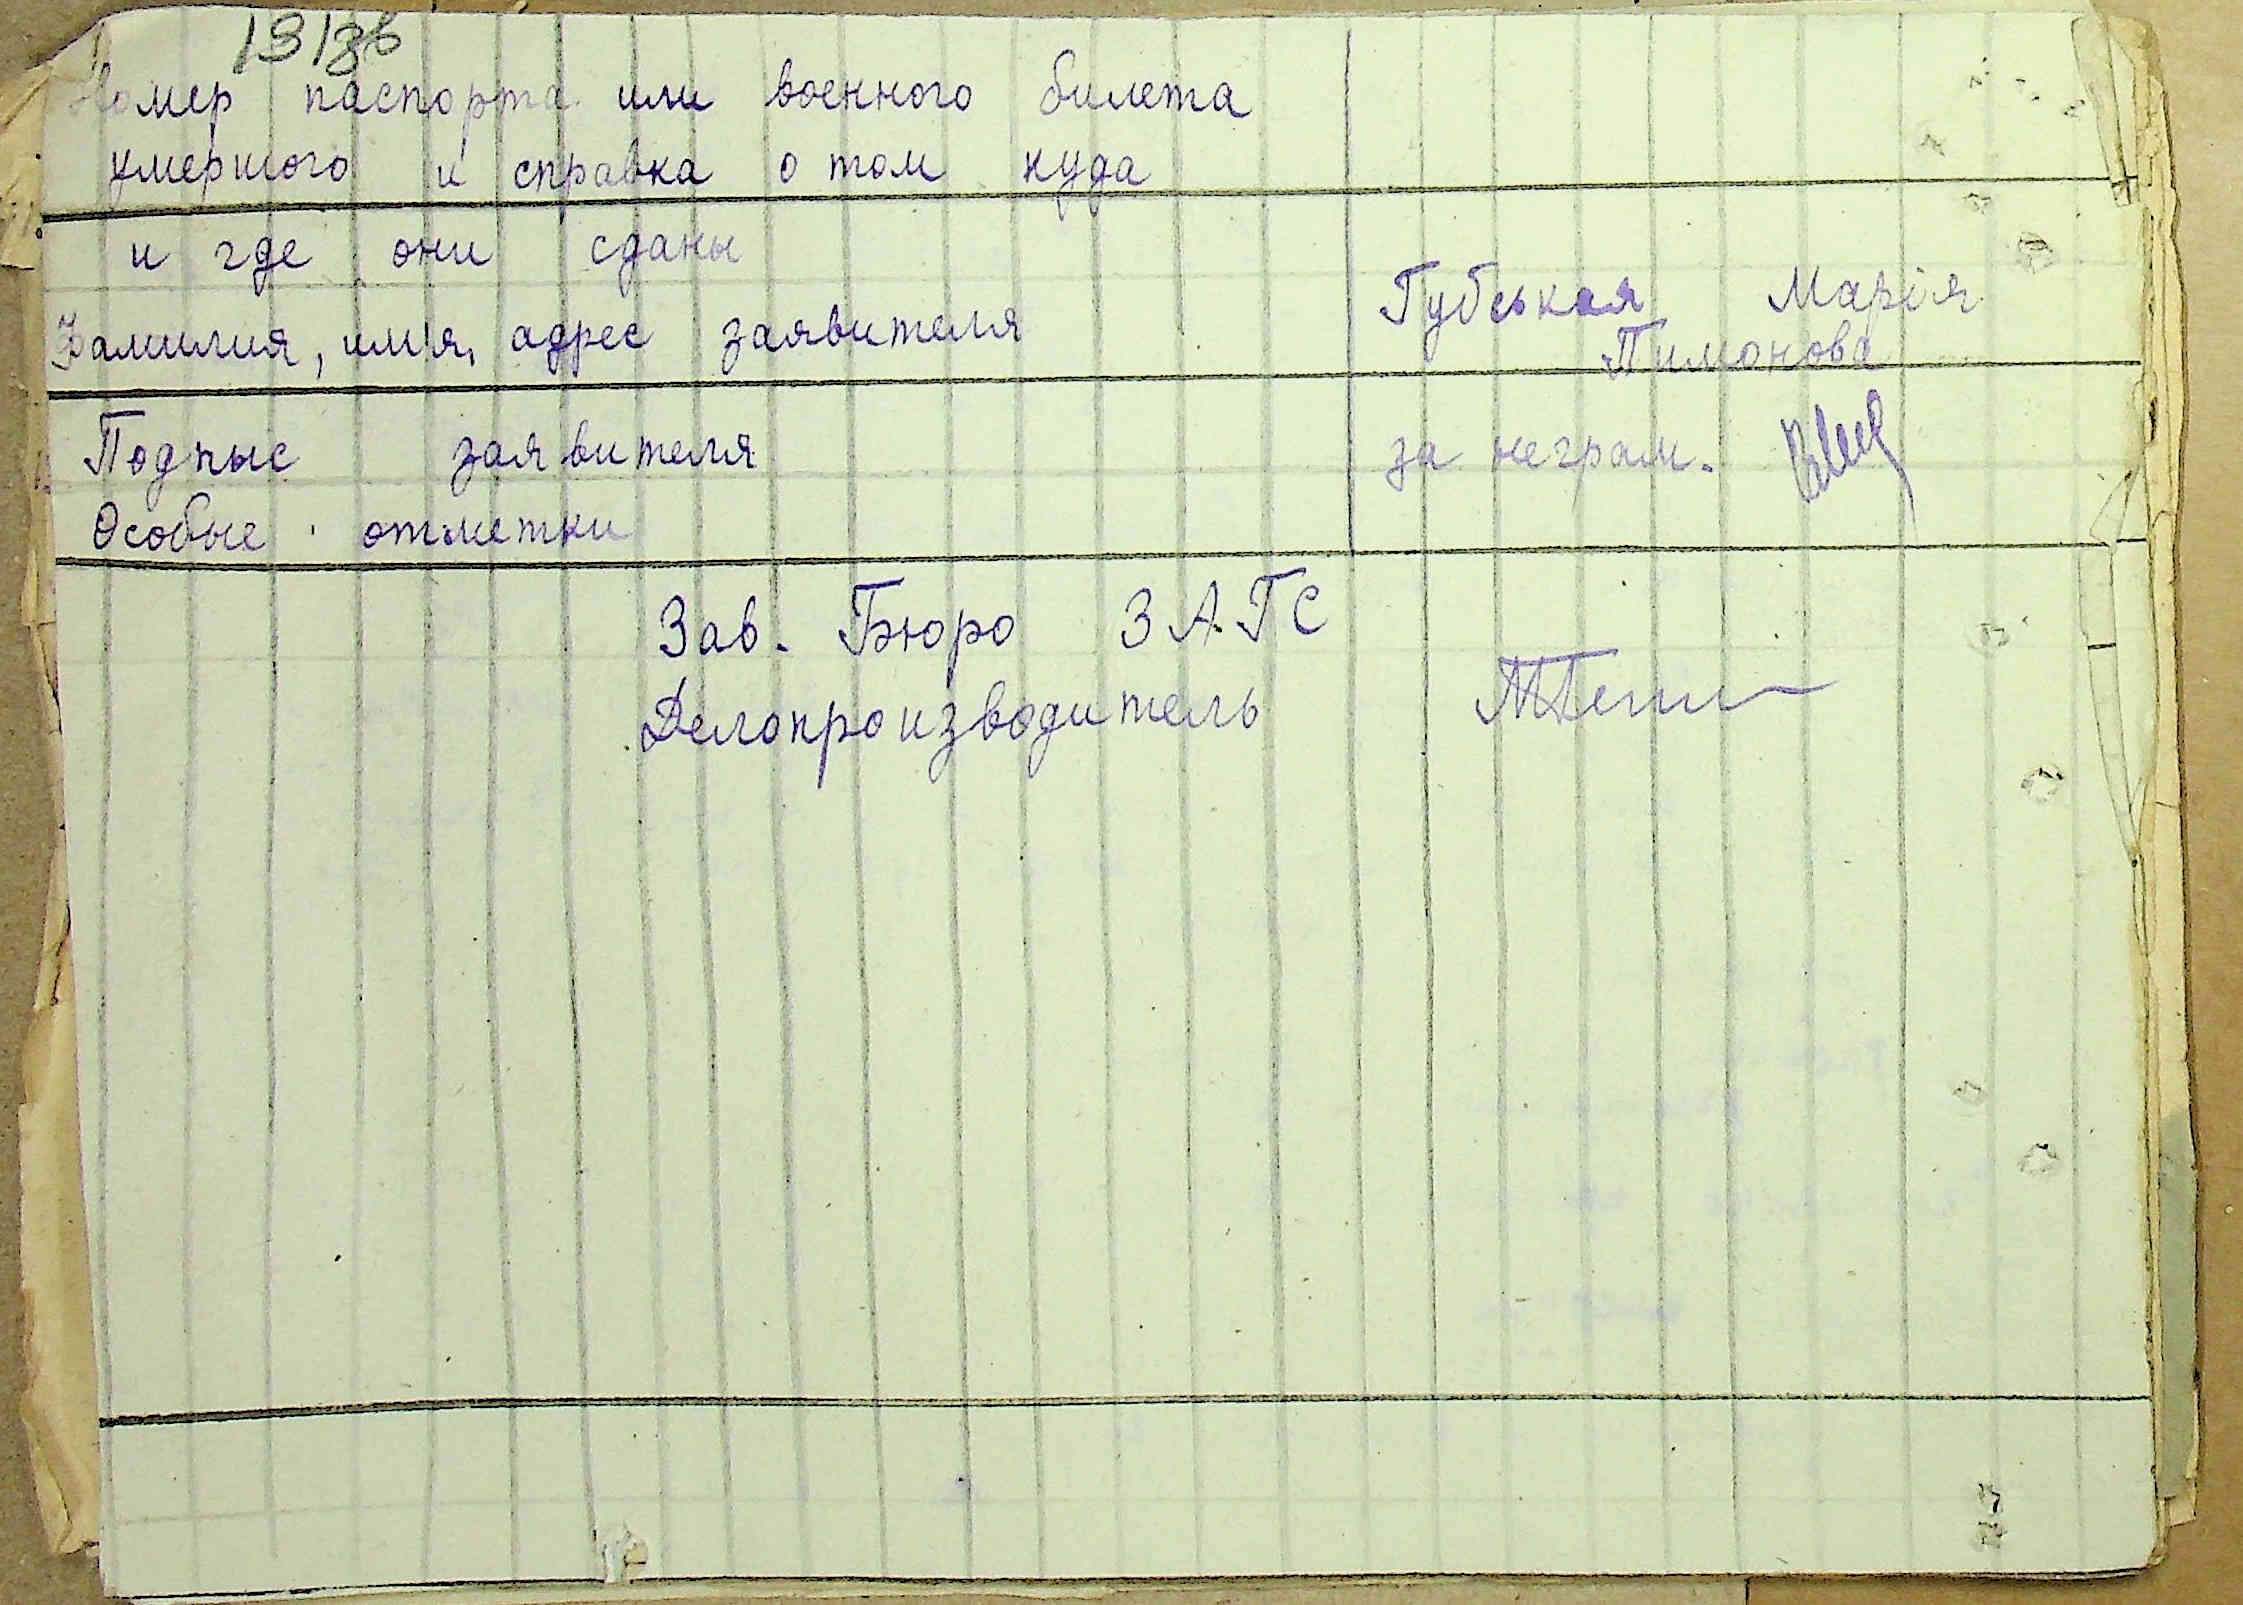 13 зв
Номер паспорта или военного билета
умершого и справка о том куда
и где они сданы
Фамилия, им'я, адрес заявителя
Губськая Марія
Пимонова
Подпыс заявителя
за неграм.
Особые отметки
Зав. Бюро ЗАГС
Делопроизводитель